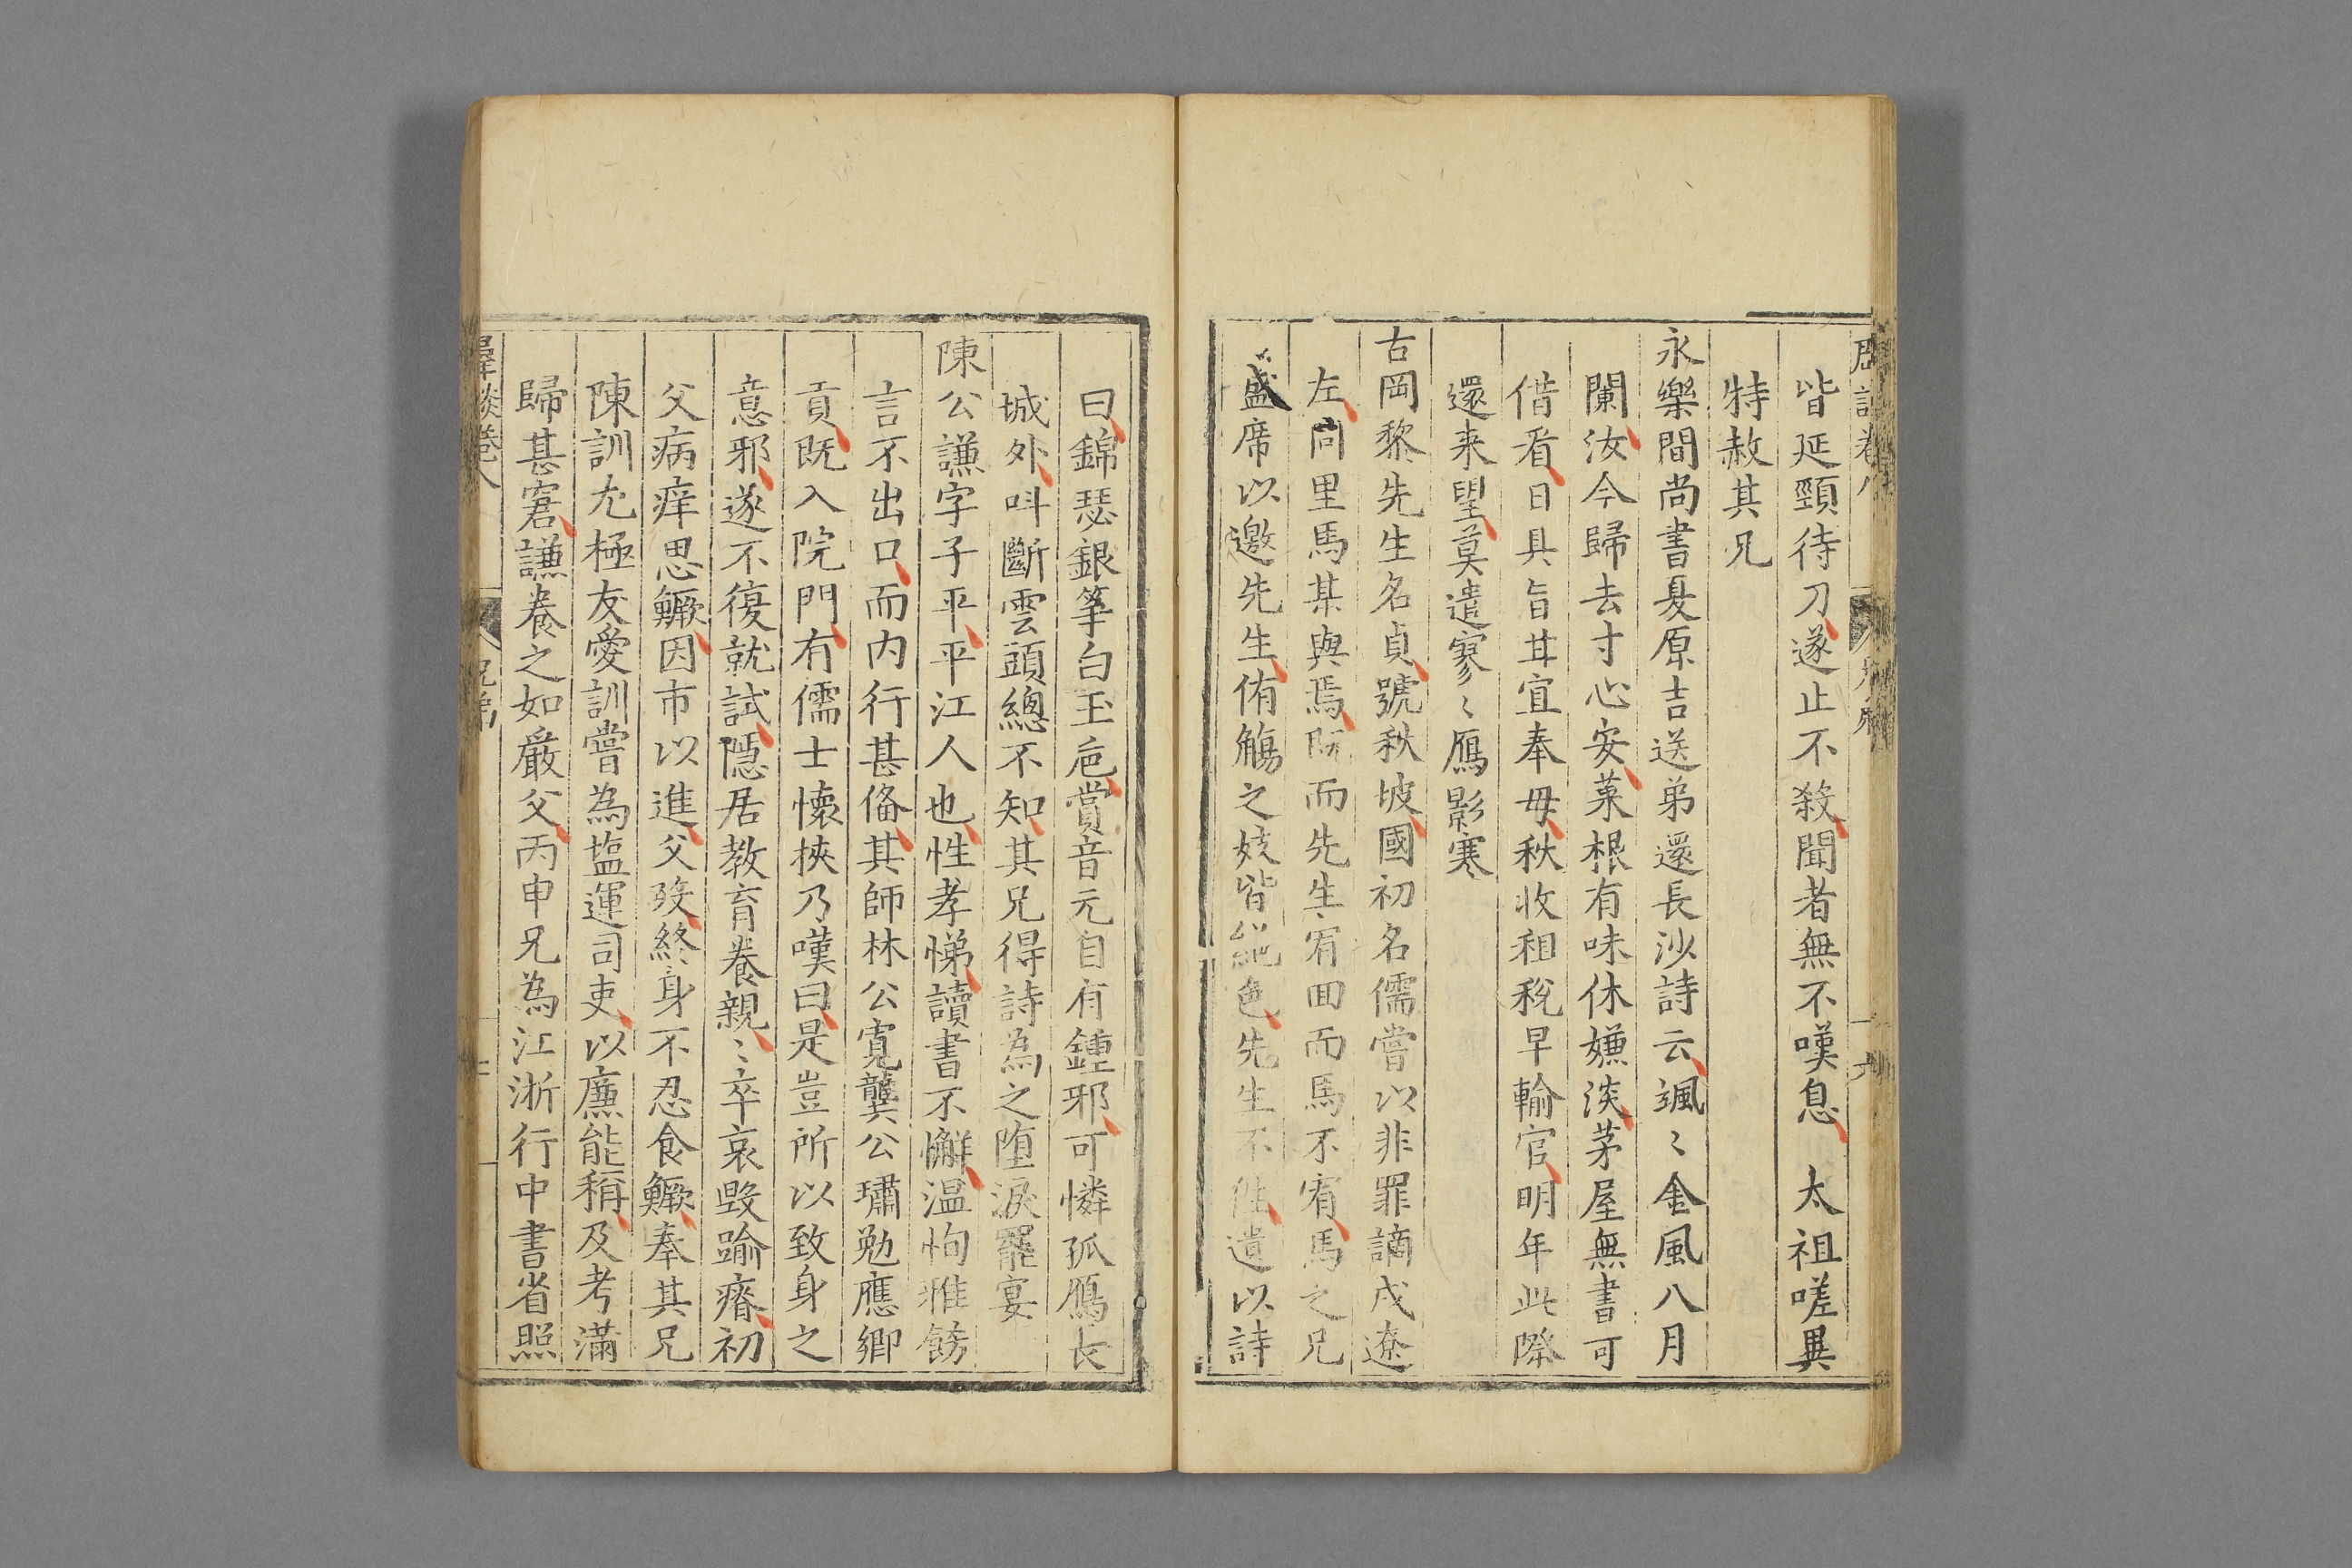 皆延頸待刀遂止不殺聞者無不嘆息　太祖嗟異
特赦其兄
永樂間尚書夏原吉送弟還長沙詩云颯〻金風八月
闌汝今歸去寸心安菜根有味休嫌淡茅屋無書可
借看日具旨甘宜奉母秋收租稅早輸官明年此際
還来望莫遣寥〻鴈影寒
古岡黎先生名貞號秋坡國初名儒嘗以非罪謫戍遼
左同里馬某與焉既而先生宥囬而馬不宥馬之兄
盛席以邀先生侑觴之妓皆絕色先生不往遺以詩
曰錦瑟銀筝白玉巵賞音元自有鍾邪可憐孤鴈長
城外呌斷雲頭總不知其兄得詩為之堕淚罷宴
陳公謙字子平平江人也性孝悌讀書不懈温恂雅飭
言不出口而内行甚偹其師林公寬龔公璛勉應鄉
貢既入院門有儒士懷挾乃嘆曰是豈所以致身之
意邪遂不復就試隱居教育養親〻卒哀毀踰瘠初
父病痒思鱖因市以進父歿終身不忍食鱖奉其兄
陳訓尤極友愛訓嘗為塩運司吏以廉能稱及考滿
歸甚窘謙養之如嚴父丙申兄為江浙行中書省照
卷八
兄弟